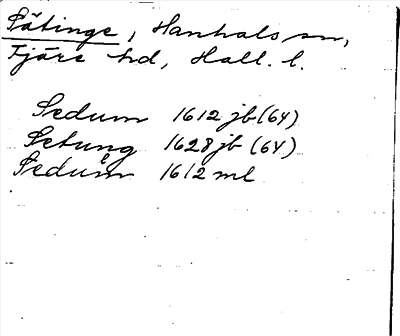 Sätinge, Hanhals sn,
Fjäre hd, Hall. l.
Sedum 1612 jb (64)
Setung 1628 jb (64)
Sedum 1612 ml